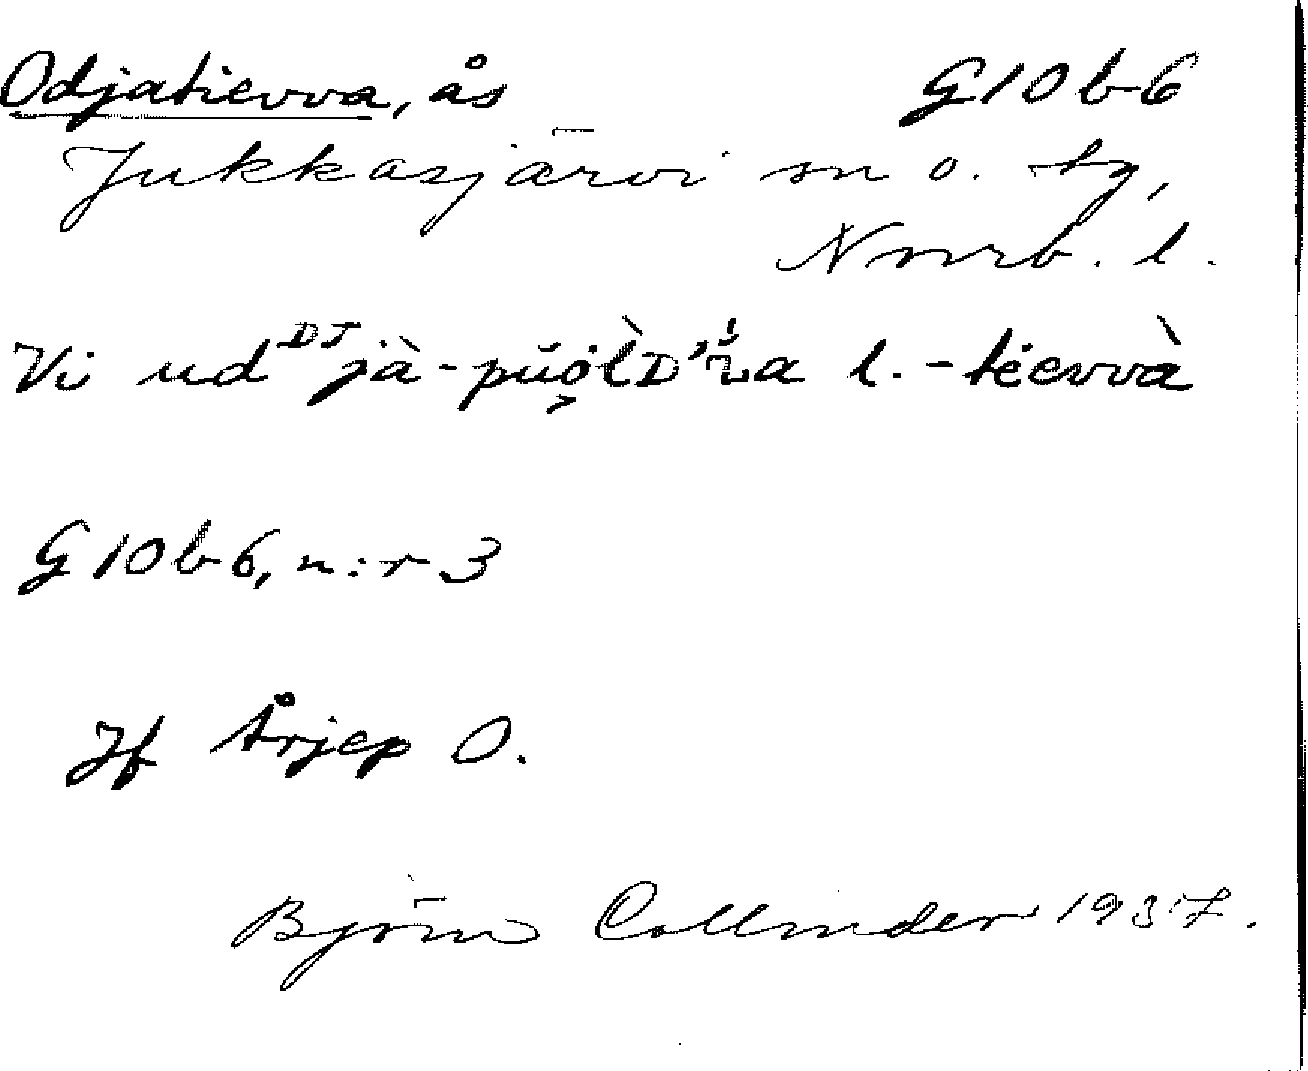 Odjatievva, ås G10b6
Jukkasjärvi sn o. tg,
Norrb. l.
Vi l. -tievvà
G10b6, n:r 3
Jf Årjep O.
Björn Collinder 1937.